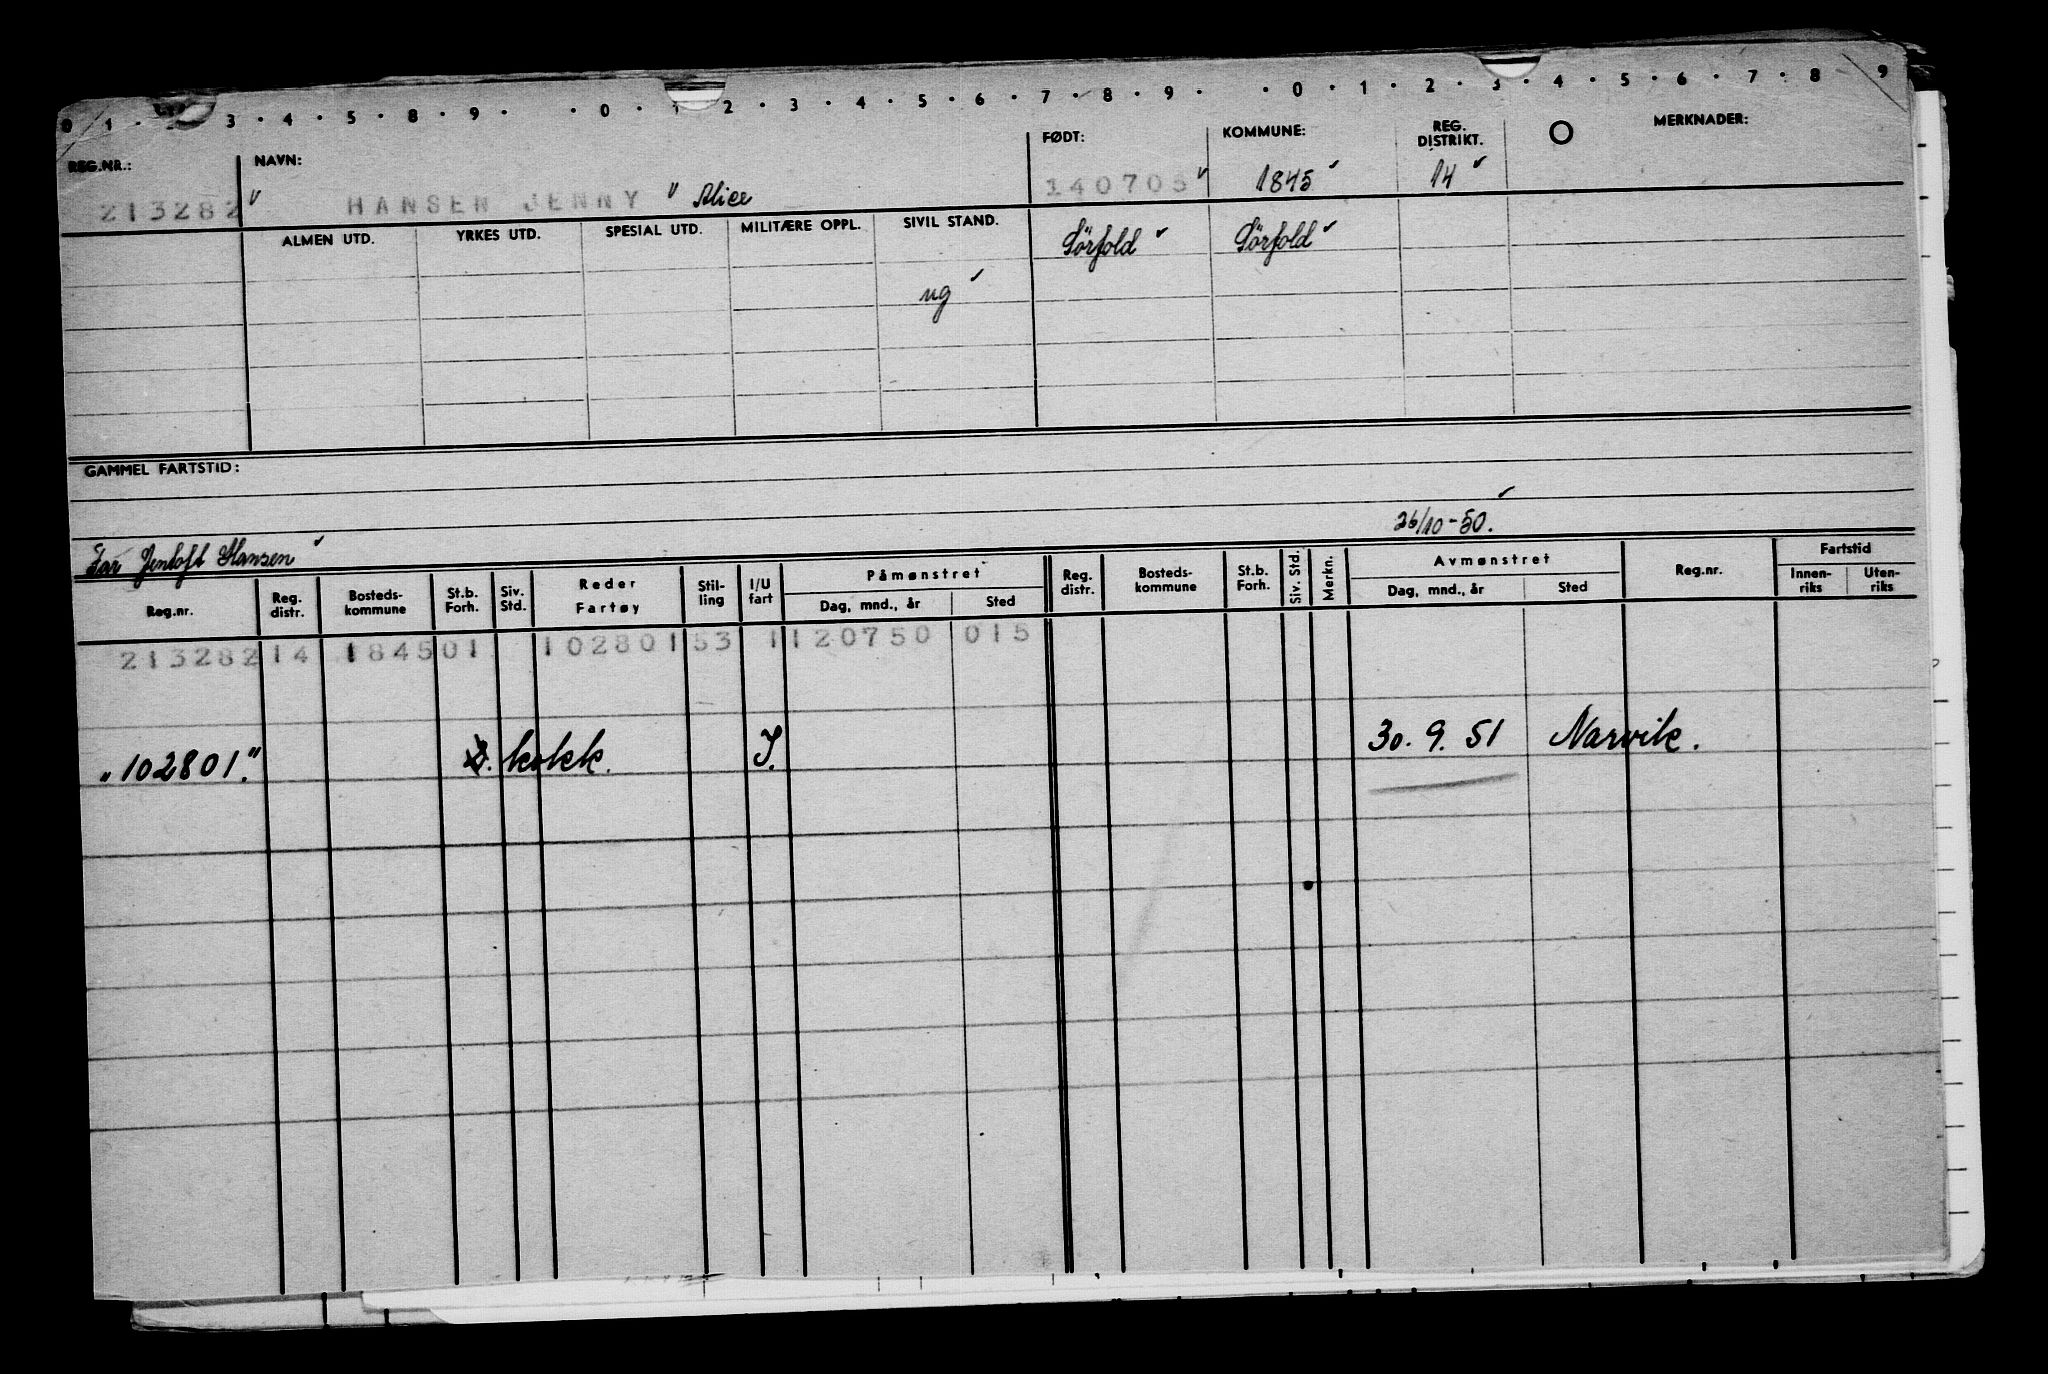 0 1 · 2 3 · 4 · 5 · 8 · 9 · · 0 · 1 2 · 3 · 4 · 5 · 6 · 7 · 8 · 9 · · 0 · 1 · 2 · 3 · 4 · 5 · 6 · 7 · 8 9
REG.NR.: NAVN: FØDT: KOMMUNE: REG. DISTRIKT. MERKNADER:
213282 " HANSEN JENNY " Alice 140705 " 1845 14
ALMEN UTD. YRKES UTD. SPESIAL UTD. MILITÆRE OPPL. SIVIL STAND. Sörfold Sörfold
ug
GAMMEL FARTSTID:
26/10-50.
Far Jentoft Hansen
Reg.nr. Reg. distr. Bosteds-kommune St.b. Forh. Siv. Std. Reder Fartøy Stil-ling I/U fart Påmønstret Dag, mnd., år Sted Reg. distr. Bosteds-kommune St.b. Forh. Siv. Std. Merkn. Avmønstret Dag, mnd., år Sted Reg.nr. Fartstid Innen-riks Uten-riks
213282 14 1845 01 102801 53 1 120750 015
"102801." kokk. I. 30. 9. 51 Narvik.